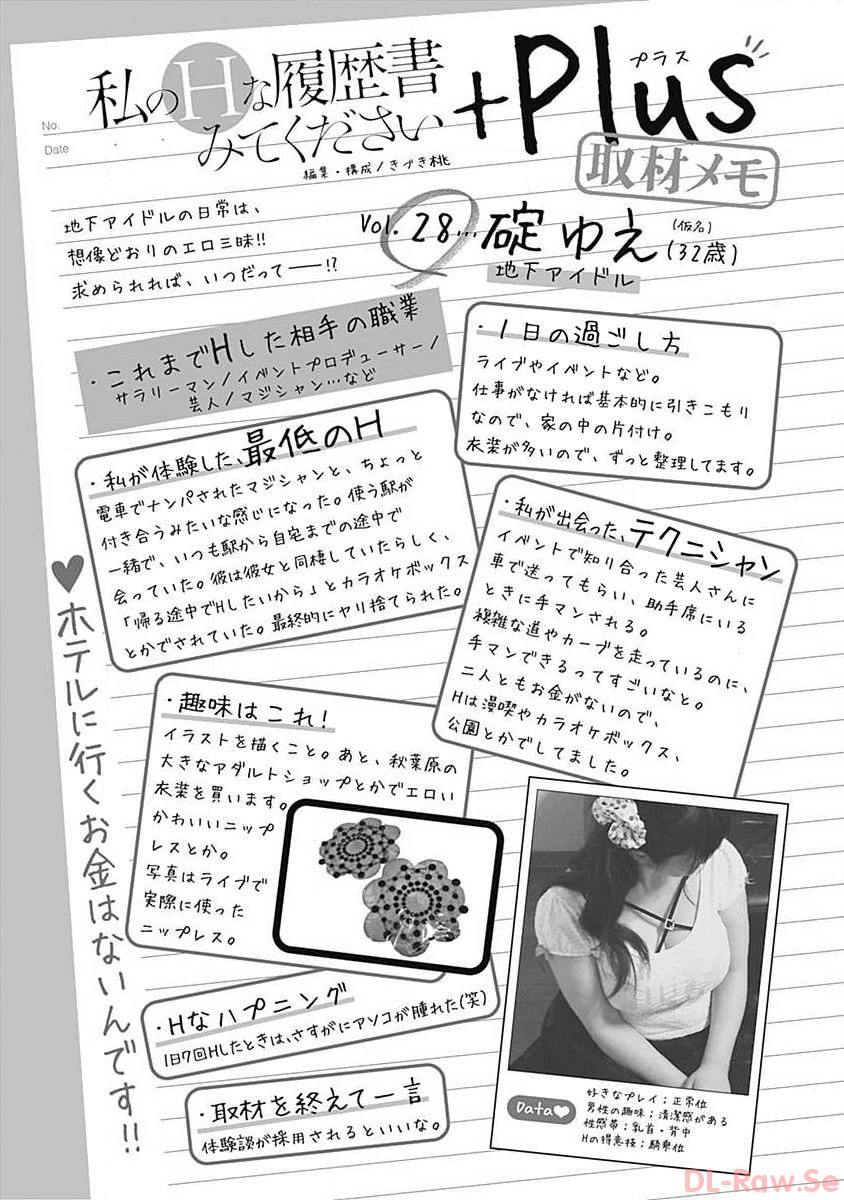 No.
Date
私のHな履歴書
みてください
+Plus
プラス
取材メモ
編集・構成/きづき桃
地下アイドルの日常は、
想像どおりのエロ三昧!!
求められれば、いつだって――!?
Vol.28…碇ゆえ(仮名)(32歳)
地下アイドル
・これまでHした相手の職業
サラリーマン/イベントプロデューサー/
芸人/マジシャン…など
・1日の過ごし方
ライブやイベントなど。
仕事がなければ基本的に引きこもり
なので、家の中の片付け。
衣装が多いので、ずっと整理してます。
・私が体験した、最低のH
電車でナンパされたマジシャンと、ちょっと
付き合うみたいな感じになった。使う駅が
一緒で、いつも駅から自宅までの途中で
会っていた。彼は彼女と同棲していたらしく、
「帰る途中でHしたいから」とカラオケボックス
とかでされていた。最終的にヤり捨てられた。
・私が出会った、テクニシャン
イベントで知り合った芸人さんに
車で送ってもらい、助手席にいる
ときに手マンされる。
複雑な道やカーブを走っているのに、
手マンできるってすごいなと。
二人ともお金がないので、
Hは漫喫やカラオケボックス、
公園とかでしてました。
♥ホテルに行くお金はないんです!!
・趣味はこれ!
イラストを描くこと。あと、秋葉原の
大きなアダルトショップとかでエロい
衣装を買います。
かわいいニップ
レスとか。
写真はライブで
実際に使った
ニップレス。
・Hなハプニング
1日7回Hしたときは、さすがにアソコが腫れた(笑)
・取材を終えて一言
体験談が採用されるといいな。
Data♥
好きなプレイ;正常位
男性の趣味;清潔感がある
性感帯;乳首・背中
Hの得意技;騎乗位
DL-Raw.Se